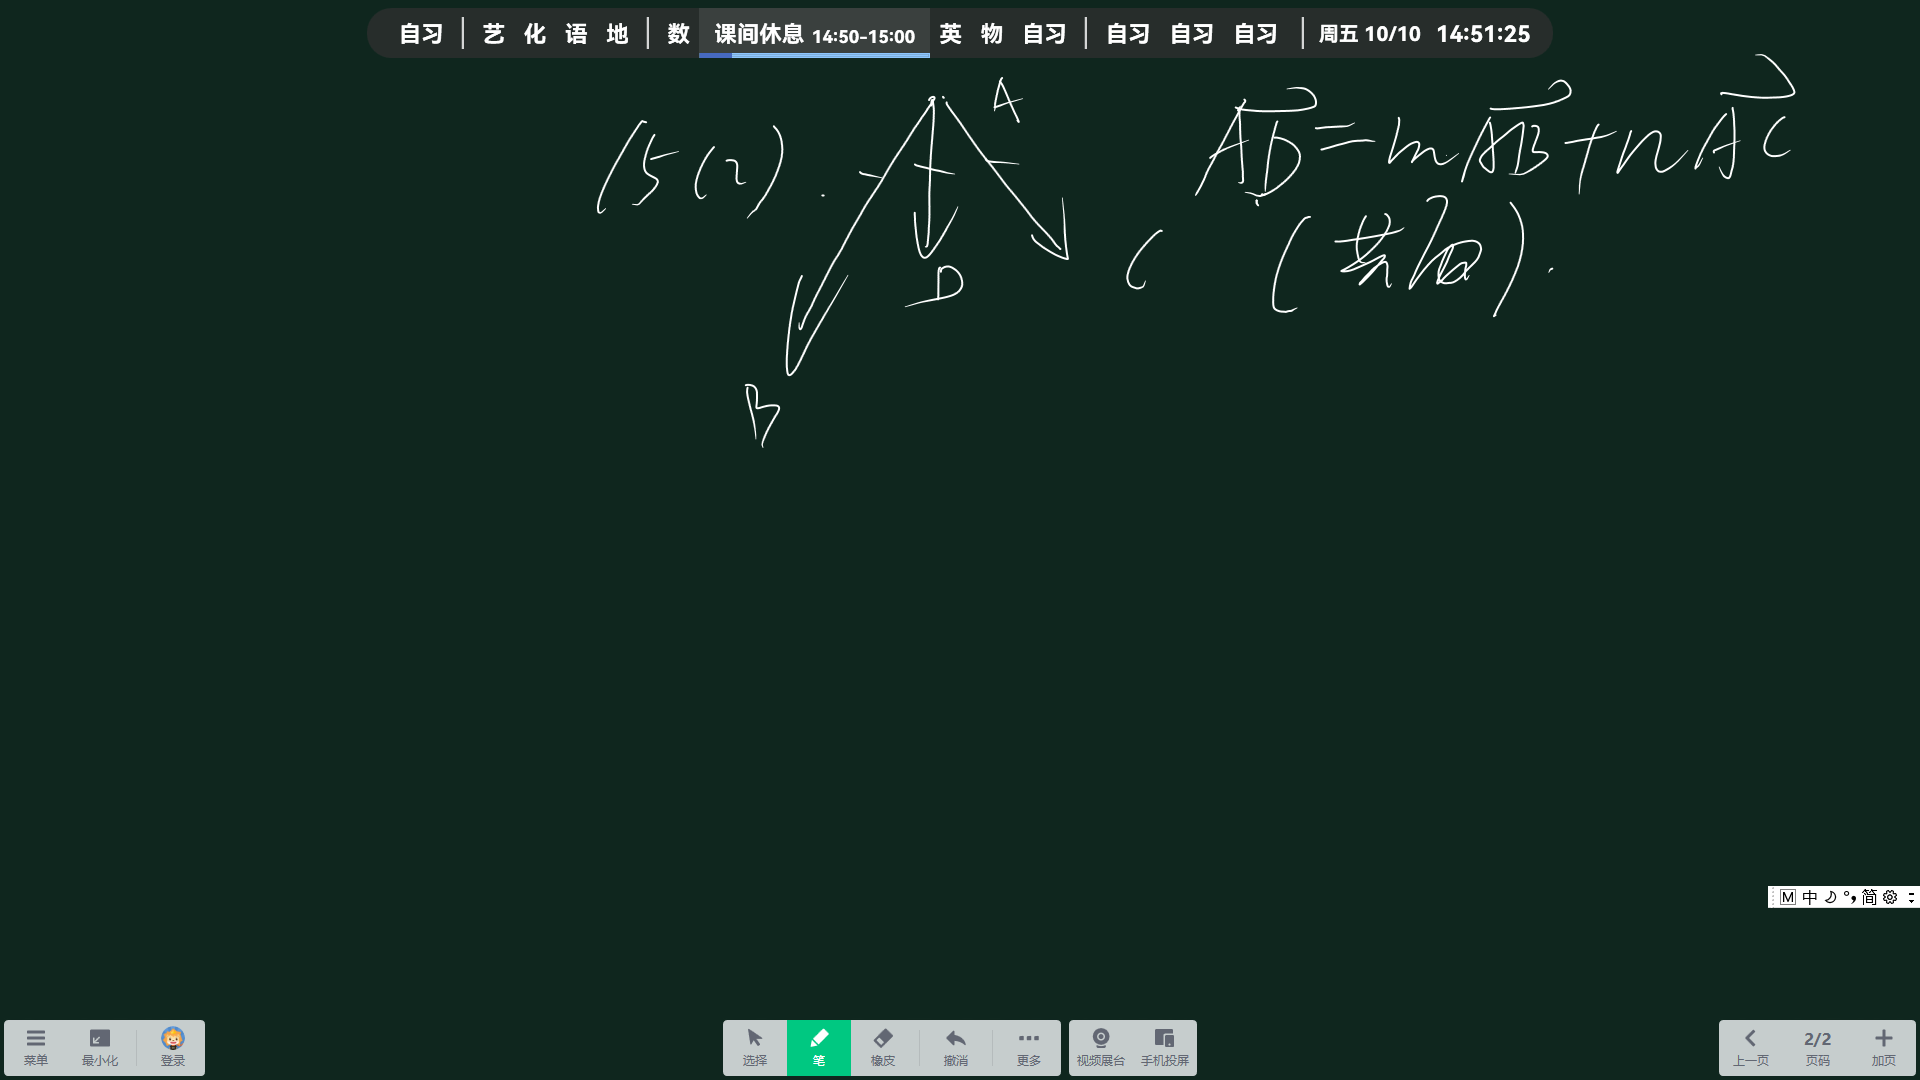 自习 艺 化 语 地 数 课间休息 14:50-15:00 英 物 自习 自习 自习 自习 周五 10/10 14:51:25
15(2). A AD=mAB+nAC
D C (共面).
B
M 中 简
菜单 最小化 登录 选择 笔 橡皮 撤消 更多 视频展台 手机投屏 上一页 2/2 页码 加页